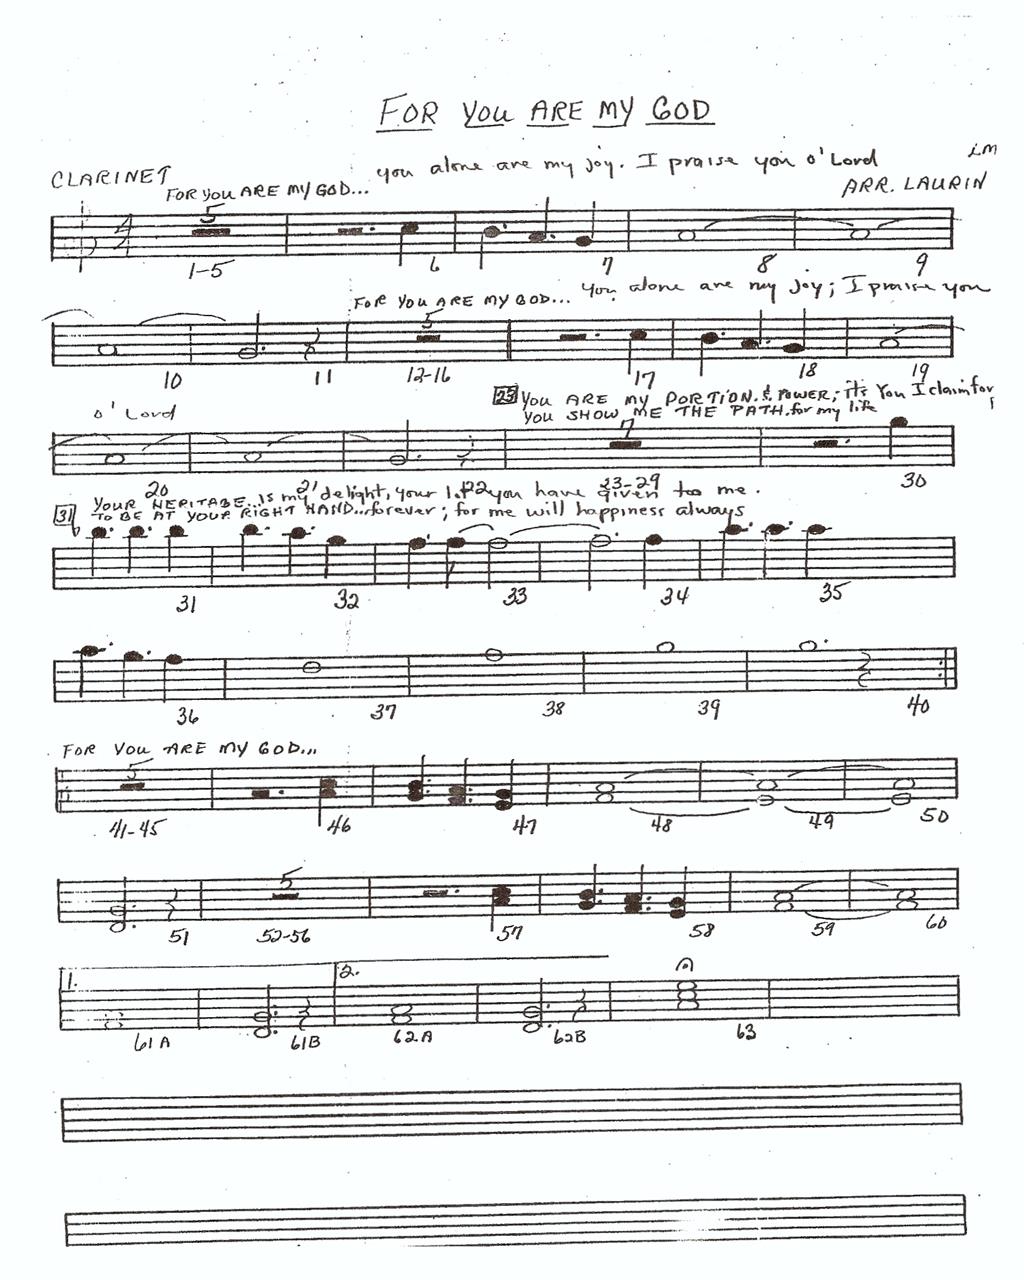 FOR YOU ARE MY GOD
you alone are my joy. I praise you o' Lord
CLARINET
FOR YOU ARE MY GOD...
ARR. LAURIN
5
1-5 6 7 8 9
FOR YOU ARE MY GOD... You alone are my joy; I praise you
5
10 11 12-16 17 18 19
o' Lord
23 YOU ARE MY PORTION & POWER; it's You I claim for
YOU SHOW ME THE PATH for my life
7
20 21 22 23-29 30
31 YOUR HERITAGE...is my delight, your lot you have given to me.
TO BE AT YOUR RIGHT HAND...forever; for me will happiness always
31 32 33 34 35
36 37 38 39 40
FOR YOU ARE MY GOD...
5
41-45 46 47 48 49 50
5
51 52-56 57 58 59 60
1. 2.
61A 61B 62A 62B 63